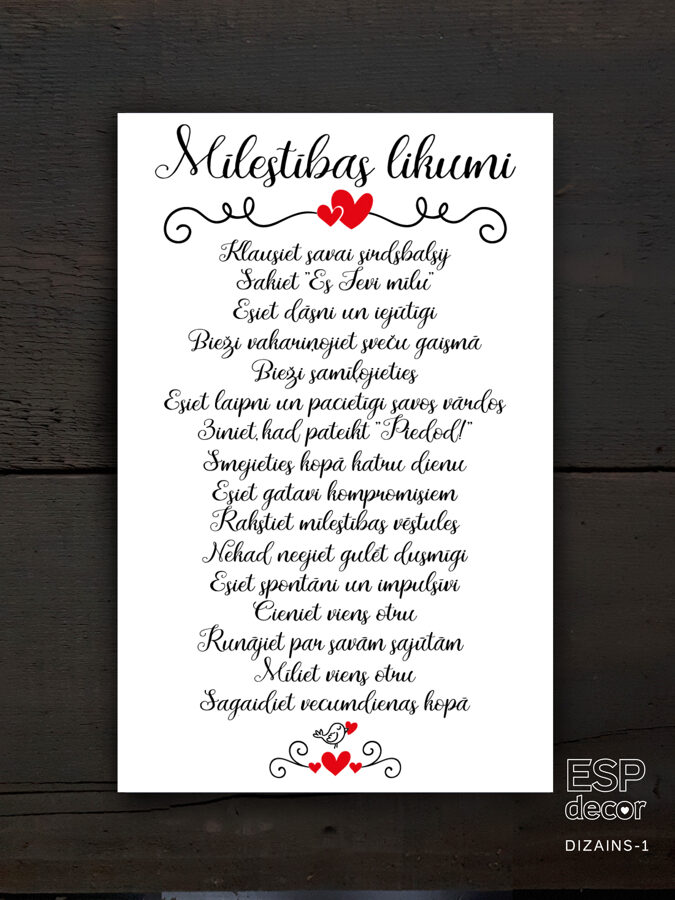 Mīlestības likumi
Klausiet savai sirdsbalsij
Sakiet "Es Tevi mīlu"
Esiet dāsni un iejūtīgi
Bieži vakariņojiet sveču gaismā
Bieži samīļojieties
Esiet laipni un pacietīgi savos vārdos
Ziniet, kad pateikt "Piedod!"
Smejieties kopā katru dienu
Esiet gatavi kompromisiem
Rakstiet mīlestības vēstules
Nekad neejiet gulēt dusmīgi
Esiet spontāni un impulsīvi
Cieniet viens otru
Runājiet par savām sajūtām
Mīliet viens otru
Sagaidiet vecumdienas kopā
ESP
decor
DIZAINS-1